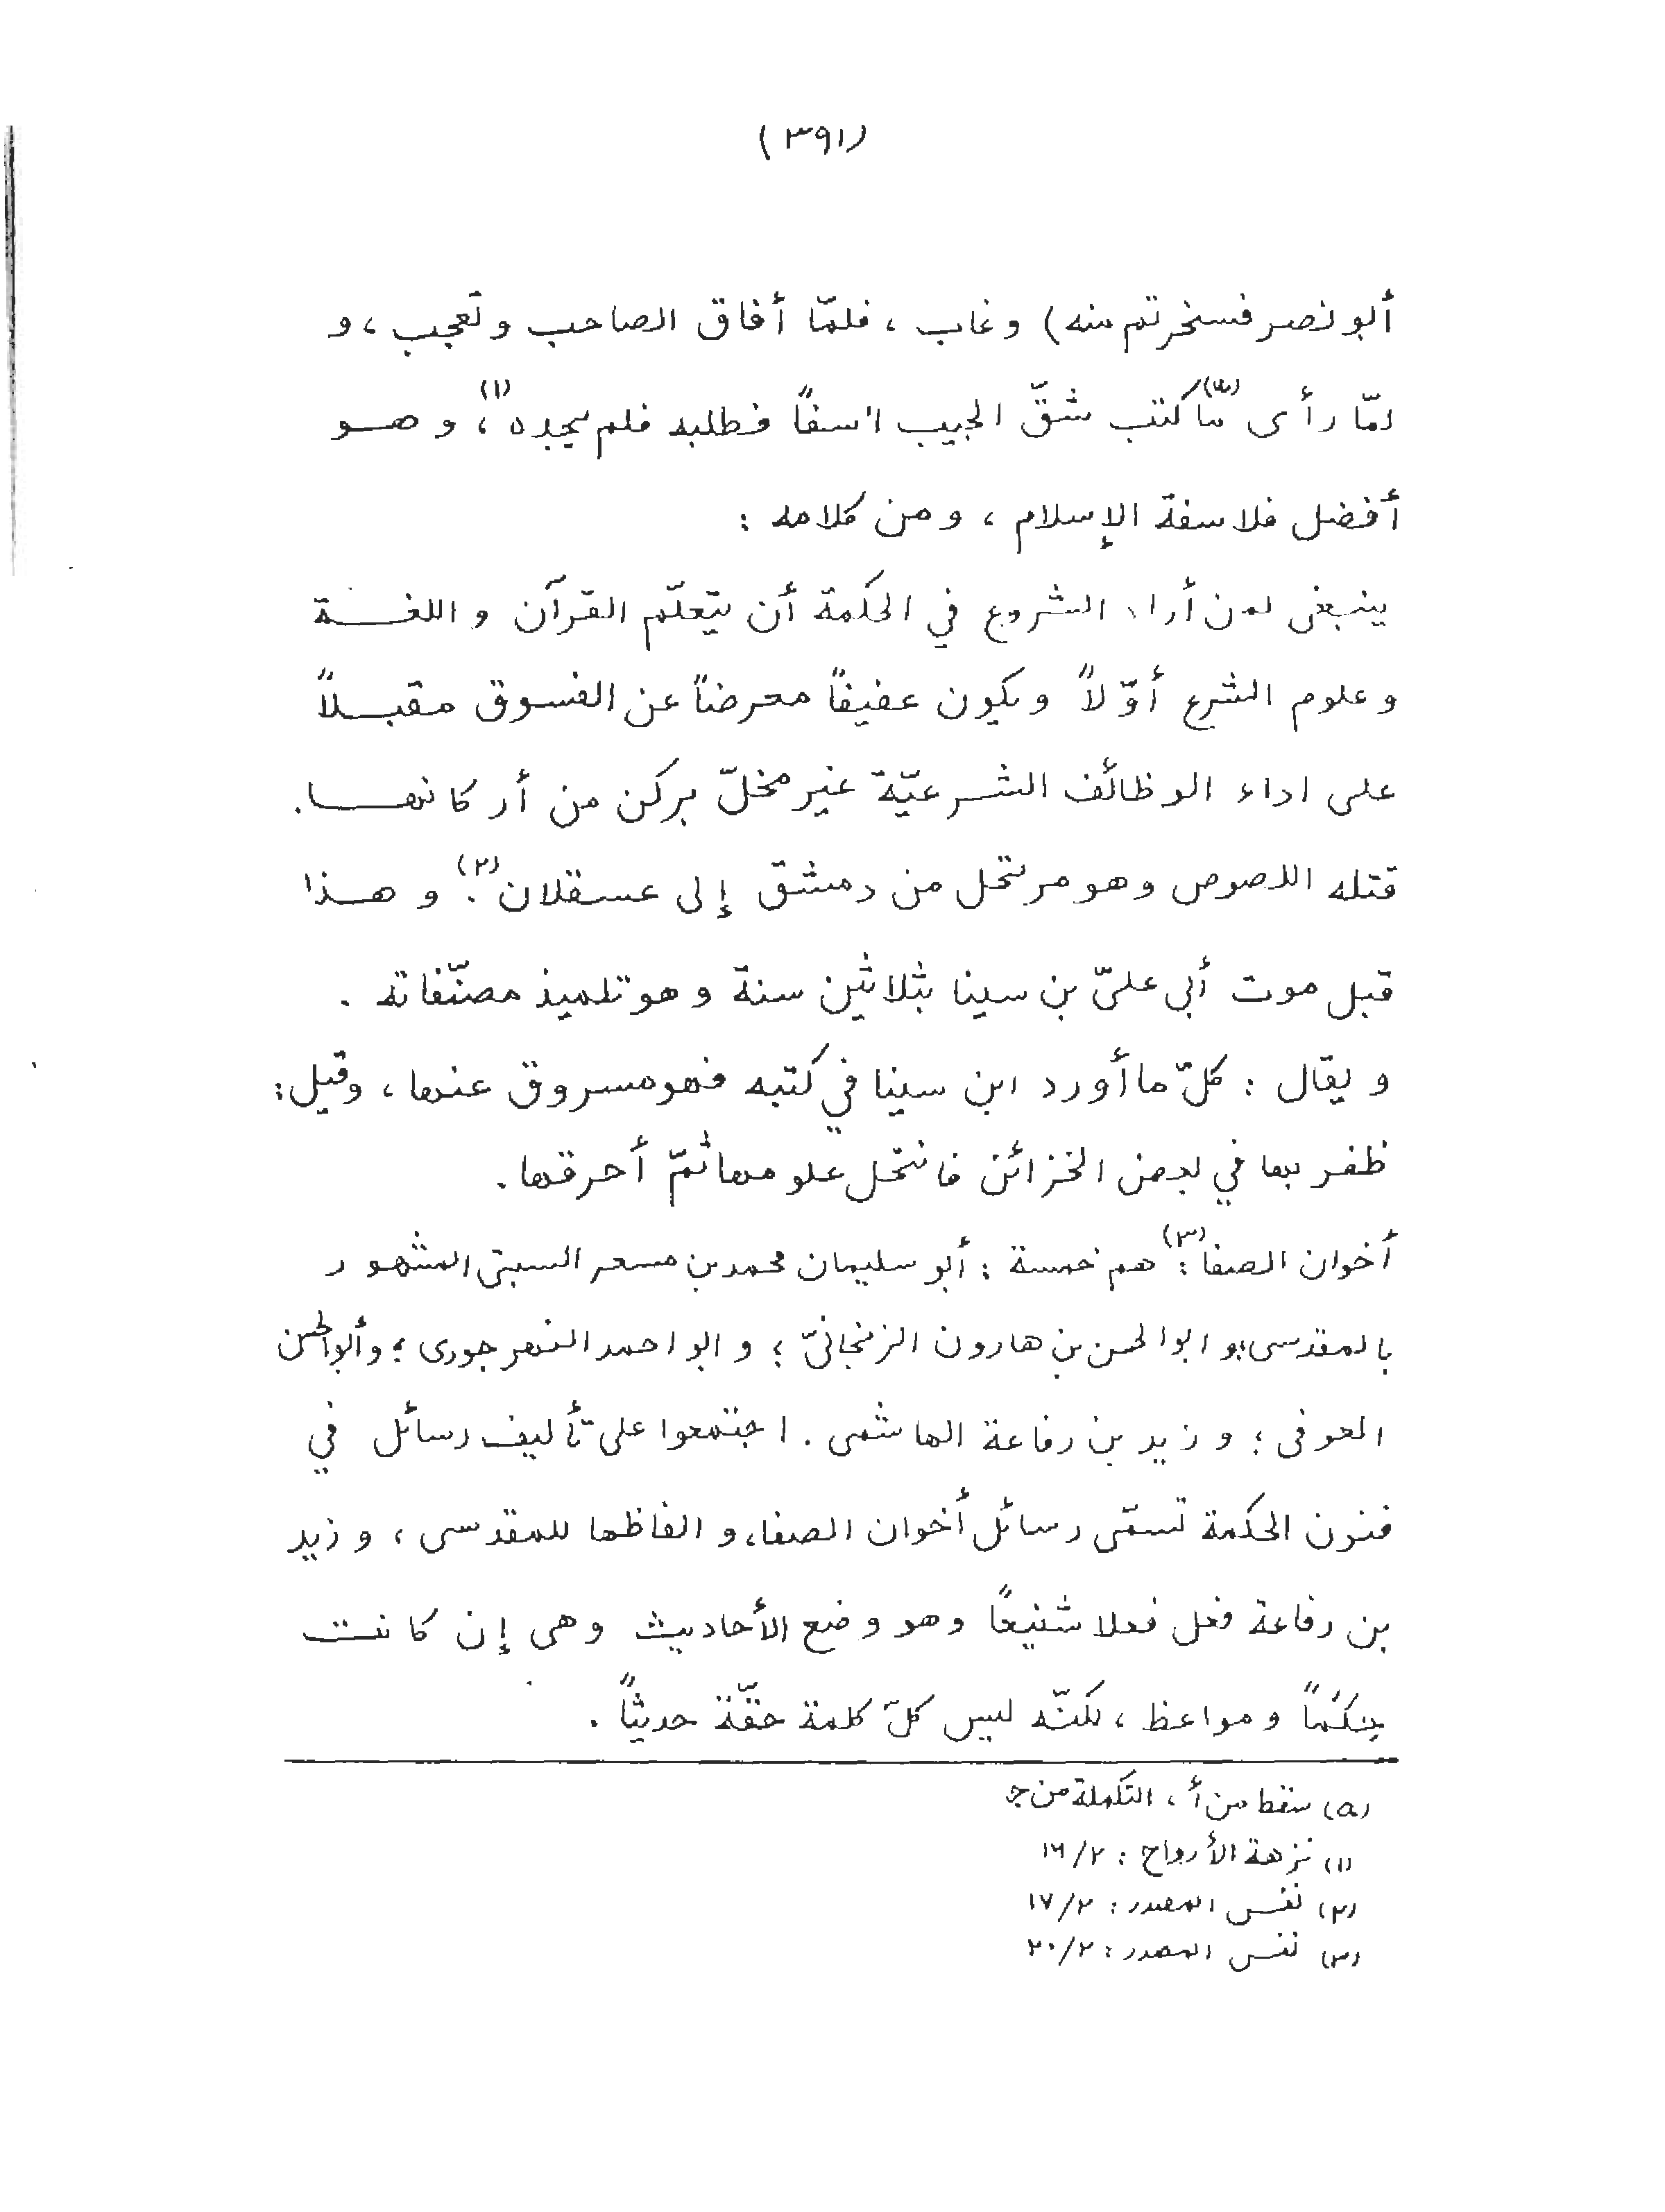 (٣٩١)
ألبو نصر فسخرتم منه) وغاب ، فلمّا أفاق الصاحب وتعجب ، و
لمّا رأى (ه)ما كتب شقّ الجيب اسفاً فطلبه فلم يجده(١)، و هــو
أفضل فلاسفة الإسلام ، ومن كلامه :
ينبغى لمن أراد الشروع في الحكمة أن يتعلّم القرآن و اللغــة
و علوم الشرع أوّلاً ويكون عفيفاً معرضاً عن الفسوق مقبــلاً
على اداء الوظائف الشرعيّة غير مخلّ بركن من أركانهــا.
قتله اللصوص وهو مرتحل من دمشق إلى عسقلان(٢). و هــذا
قبل موت أبي علىّ بن سينا بثلاثين سنة وهو تلميذ مصنّفاته .
و يقال : كلّ ما أورد ابن سينا في كتبه فهو مسروق عنها ، وقيل :
ظفر بها في بعض الخزائن فانتحل علومها ثمّ أحرقها .
أخوان الصفا(٣): هم خمسة : أبو سليمان محمد بن مسعر السبتى المشهور
بالمقدسى؛ و ابوالحسن بن هارون الزنجانىّ ؛ و ابو احمد النهرجورى ؛ وأبوالحسن
العوفى ؛ و زيد بن رفاعة الهاشمى . اجتمعوا على تأليف رسائل في
فنون الحكمة تسمّى رسائل أخوان الصفا، و الفاظها للمقدسى ، و زيد
بن رفاعة فعل فعلا شنيعاً وهو وضع الأحاديث وهى إن كانت
حِكَماً ومواعظ ، لكنّه ليس كلّ كلمة حقّة حديثاً .
(ه) سقط من أ ، التكملة من ج
(١) نزهة الأرواح : ١٦/٢
(٢) نفس المصدر : ١٧/٢
(٣) نفس المصدر : ٢٠/٢